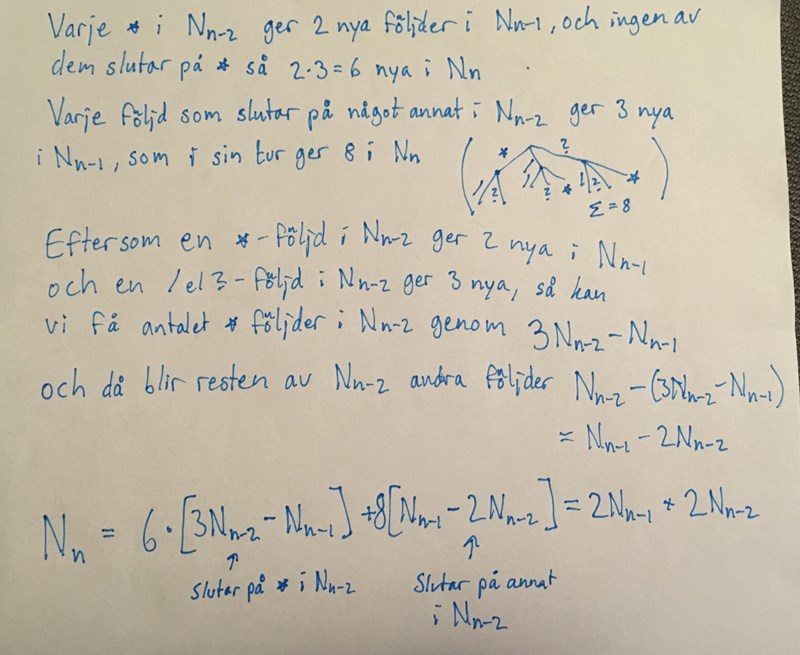 Varje * i Nn-2 ger 2 nya följder i Nn-1, och ingen av
dem slutar på * så 2·3=6 nya i Nn
Varje följd som slutar på något annat i Nn-2 ger 3 nya
i Nn-1, som i sin tur ger 8 i Nn
* ?
! ? ! ? * ! ? *
Σ=8
Eftersom en *-följd i Nn-2 ger 2 nya i Nn-1
och en ! el ?-följd i Nn-2 ger 3 nya, så kan
vi få antalet * följder i Nn-2 genom 3Nn-2-Nn-1
och då blir resten av Nn-2 andra följder Nn-2-(3Nn-2-Nn-1)
= Nn-1-2Nn-2
Nn = 6·[3Nn-2-Nn-1]+8[Nn-1-2Nn-2]=2Nn-1+2Nn-2
↑ ↑
Slutar på * i Nn-2 Slutar på annat
i Nn-2